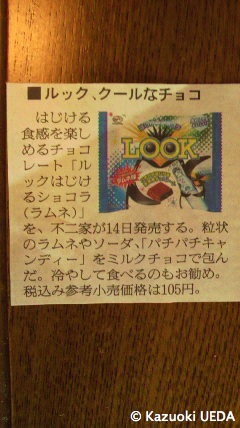 ■ルック、クールなチョコ
はじける
食感を楽し
めるチョコ
レート「ル
ックはじけ
るショコラ
(ラムネ)」
を、不二家が14日発売する。粒状
のラムネやソーダ、「パチパチキャ
ンディー」をミルクチョコで包ん
だ。冷やして食べるのもお勧め。
税込み参考小売価格は105円。
LOOK
© Kazuoki UEDA